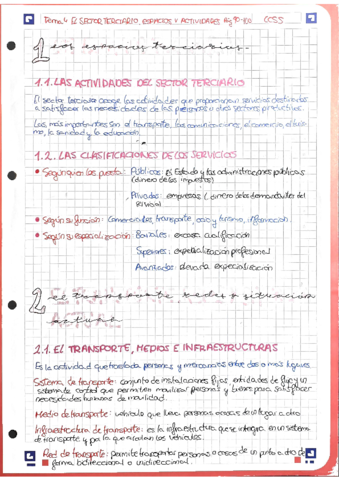 Tema 4 EL SECTOR TERCIARIO, ESPACIOS Y ACTIVIDADES CCSS
1 Los espacios terciarios.
1.1. LAS ACTIVIDADES DEL SECTOR TERCIARIO
El sector terciario acoge las actividades que proporcionan servicios destinados
a satisfacer las necesidades de las personas o otros sectores productivos.
Las más importantes son el transporte, las comunicaciones, el comercio, el turis-
mo, la sanidad y la educación.
1.2. LAS CLASIFICACIONES DE LOS SERVICIOS
• Según quien los presta: Públicos: Es Estado y las administraciones públicas
(dinero de los impuestos)
Privados: empresas (dinero de los demandantes del
servicio)
• Según su función: Comerciales, transporte, ocio y turismo, información.
• Según su especialización Banales: escasa cualificación
Superiores: especialización profesional
Avanzados: elevada especialización
2 el transporte redes y situación
actual
2.1. EL TRANSPORTE, MEDIOS E INFRAESTRUCTURAS
Es la actividad que traslada personas y mercancías entre dos o más lugares.
Sistema de transporte: conjunto de instalaciones fijas, entidades de flujo y un
sistema de control que permiten movilizar personas y bienes para satisfacer
necesidades humanas de movilidad.
Medio de transporte: vehículo que lleva personas o cosas de un lugar a otro
Infraestructura de transporte: es la infraestructura que se integra en un sistema
de transporte y por la que circulan los vehículos.
Red de transporte: permite transportar personas o cosas de un punto a otro de
forma bidireccional o unidireccional.